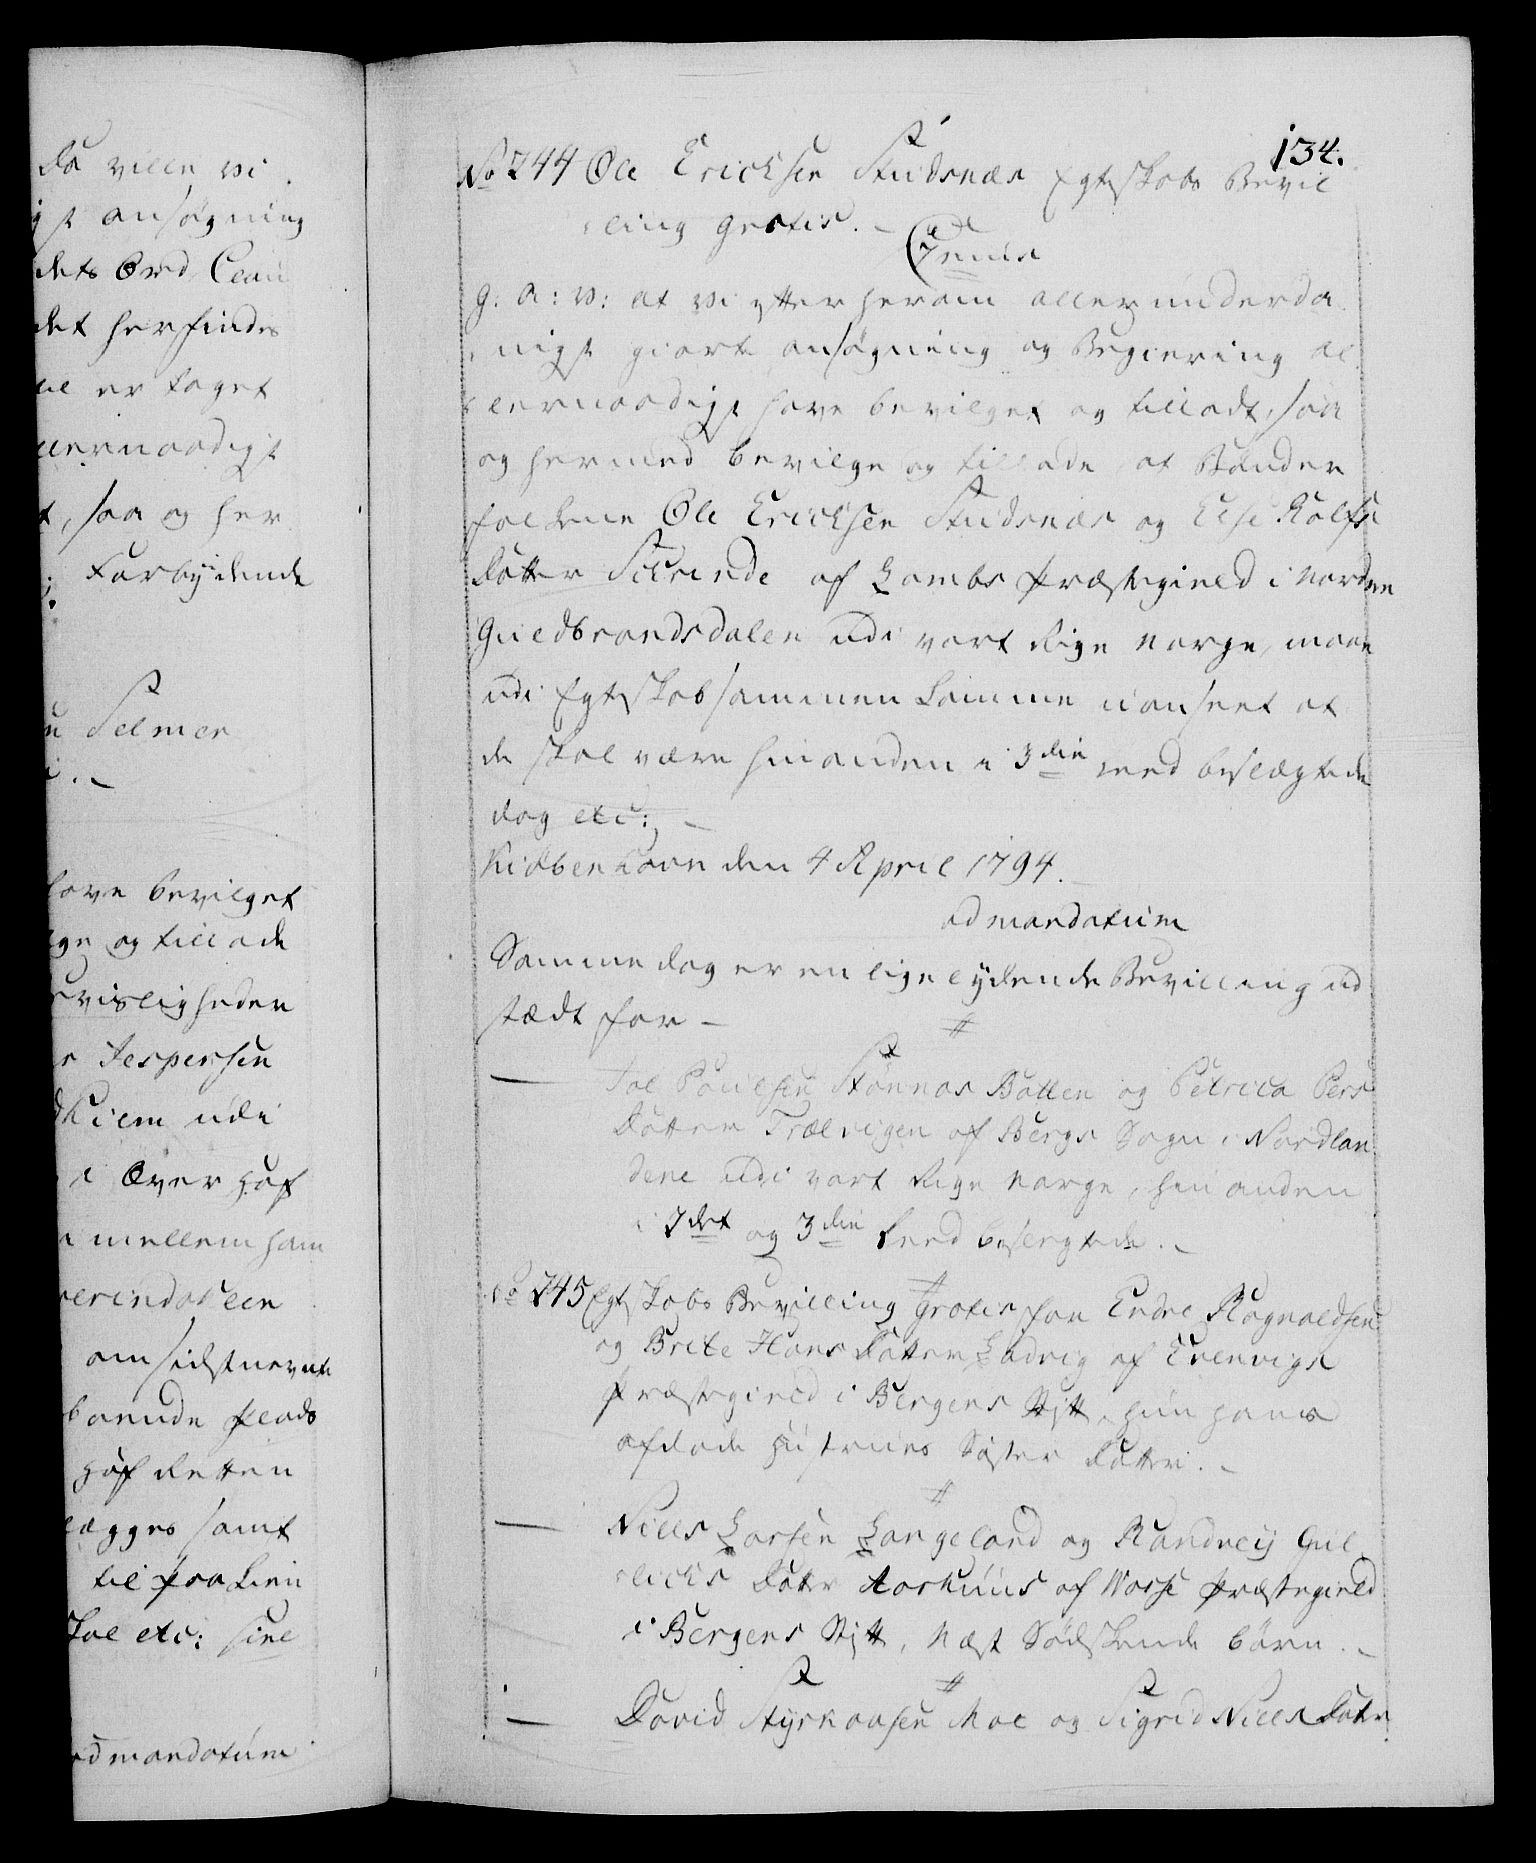 Da ville vi
gst ansøgning
dets Ord Clau
det herfindes
til er taget
llernaadigst
t, saa og her
Forbydende
Selmer
have bevilget
lge og tillade
evisligheden
r Jespersen
dhiem udi
i Over Hof
mellem ham
om sidstnevnte
boende Plads
Hof Retten
lægges samt
til fra Linie
skal etc: sine
ad mandatum
134.
No 244 Ole Ericksen Studsnæs Egteskabs Bevil
ling gratis.
Genus
G: A: V: at vi efter herom allerunderda
nigst giorte ansøgning og Begiering al
lernaadigst have bevilget og tilladt, saa
og hermed bevilge og tillade, at Bønder
folkene Ole Ericksen Studsnæs og Else Rolfs
Datter Sürende af Lombs Præstegield i Norden
Guedbrandsdalen udi vort Rige Norge, maae
udi Egteskab sammen komme uanseet at
de skal være hinanden i 3die Leed beslægtede
dog etc:
Kiøbenhavn den 4 April 1794.
ad mandatum
Samme dag er en lige lydende Bevilling ud
stædt for
Joel Poulsen Stønnas Botten og Petrica Pers
Datter Trælvigen af Bergs Sogn i Nordlan
dene udi vort Rige Norge, hinanden
i 2det og 3die Leed beslegtede.
No 245 Egteskabs Bevilling Gratis for Endre Rognaldsen
og Brite Hans Datter Ladvig af Evenvigs
Præstegield i Bergens Stift, hun hans
afdøde Hustrues Søster Datter.
Niels Larsen Langeland og Randvey Gul
lichs Datr Aarhuus af Vosse Præstegield
i Bergens Stift, Næst Sødskende børn.
David Styrkaasen Moe og Sigrid Niels Datr